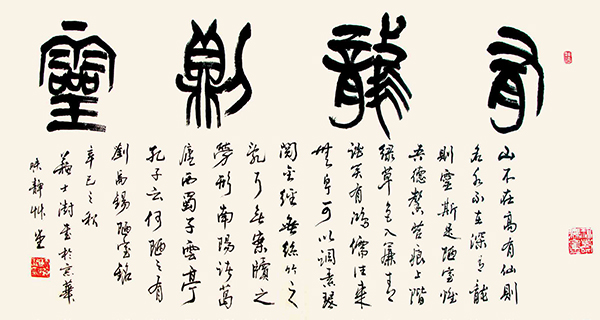 有龍則靈
山不在高有仙則
名水不在深有龍
則靈斯是陋室惟
吾德馨苔痕上階
綠草色入簾青
談笑有鴻儒往來
無白丁可以調素琴
閱金經無絲竹之
亂耳無案牘之
勞形南陽諸葛
廬西蜀子雲亭
孔子云何陋之有
劉禹錫陋室銘
辛巳之秋
士澍書於京華
味靜草堂